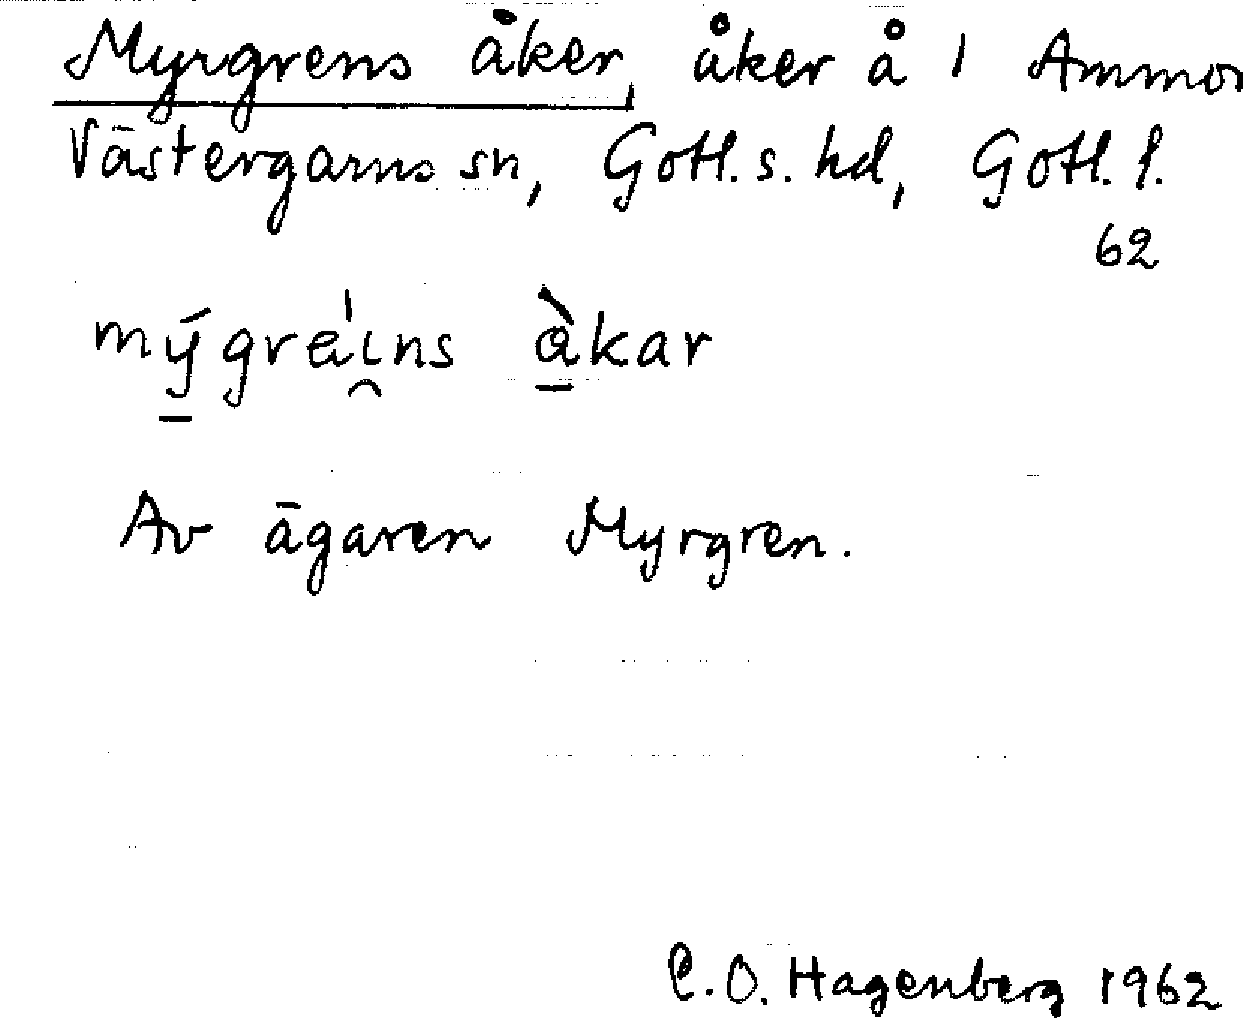 Myrgrens åker, åker å 1 Ammor
Västergarns sn, Gotl. s. hd, Gotl. l.
62
mýgréins àkar
Av ägaren Myrgren.
C. O. Hagenberg 1962